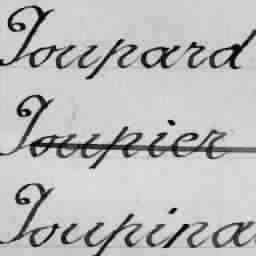 Toupard
Toupier
Toupina